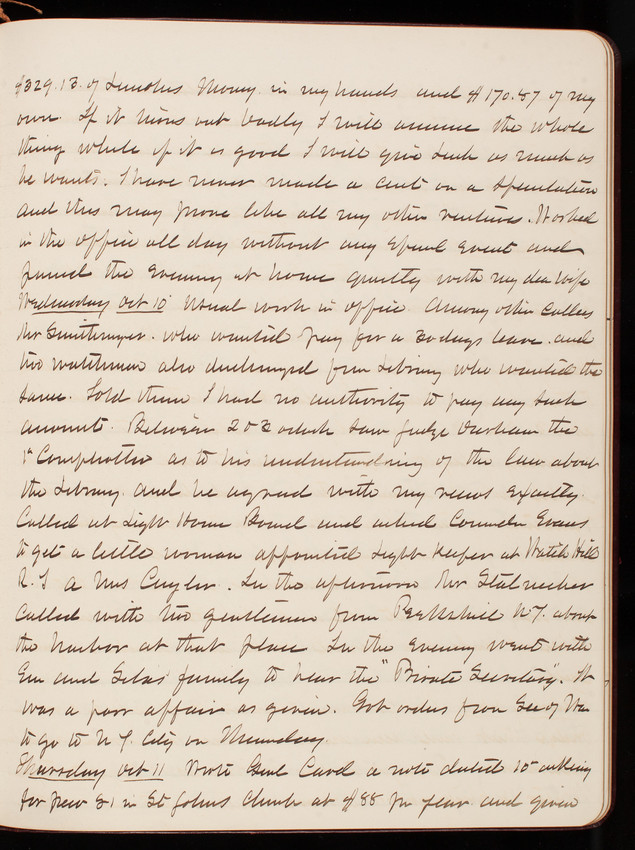 $329.13 of Lunchs money in my hands and $170.87 of my
own. If it turns out badly I will assume the whole
thing while if it is good I will give as much as
he wants. I have never made a cent on a speculation
and this may prove like all my other ventures. Worked
in the office all day without any special event and
passed the evening at home quietly with my dear wife
Wednesday Oct 10 Usual work in office. Among other callers
Mr Smithmeyer. who wanted pay for a 30 days leave. and
two watchmen also discharged from Library who wanted the
same. Told them I had no authority to pay any such
amount. Between 2 & 3 oclock saw Judge Durham the
1st Comptroller as to his understanding of the law about
the Library. and he agreed with my views exactly.
Called at Light House Board and asked Comndr Evans
to get a little woman appointed Light Keeper at Watch Hill
R.I a Mrs Cuyler. In the afternoon Mr Stalnecker
called with two gentlemen from Peekskill N.Y. about
the harbor at that place In the evening went with
Em and family to hear the "Private Secretary". It
was a poor affair as given. Got orders from Sec of War
to go to N Y. City on
Thursday Oct 11 Wrote Genl a note dated 15 asking
for pew 81 in St Johns Church at $88 per year and given